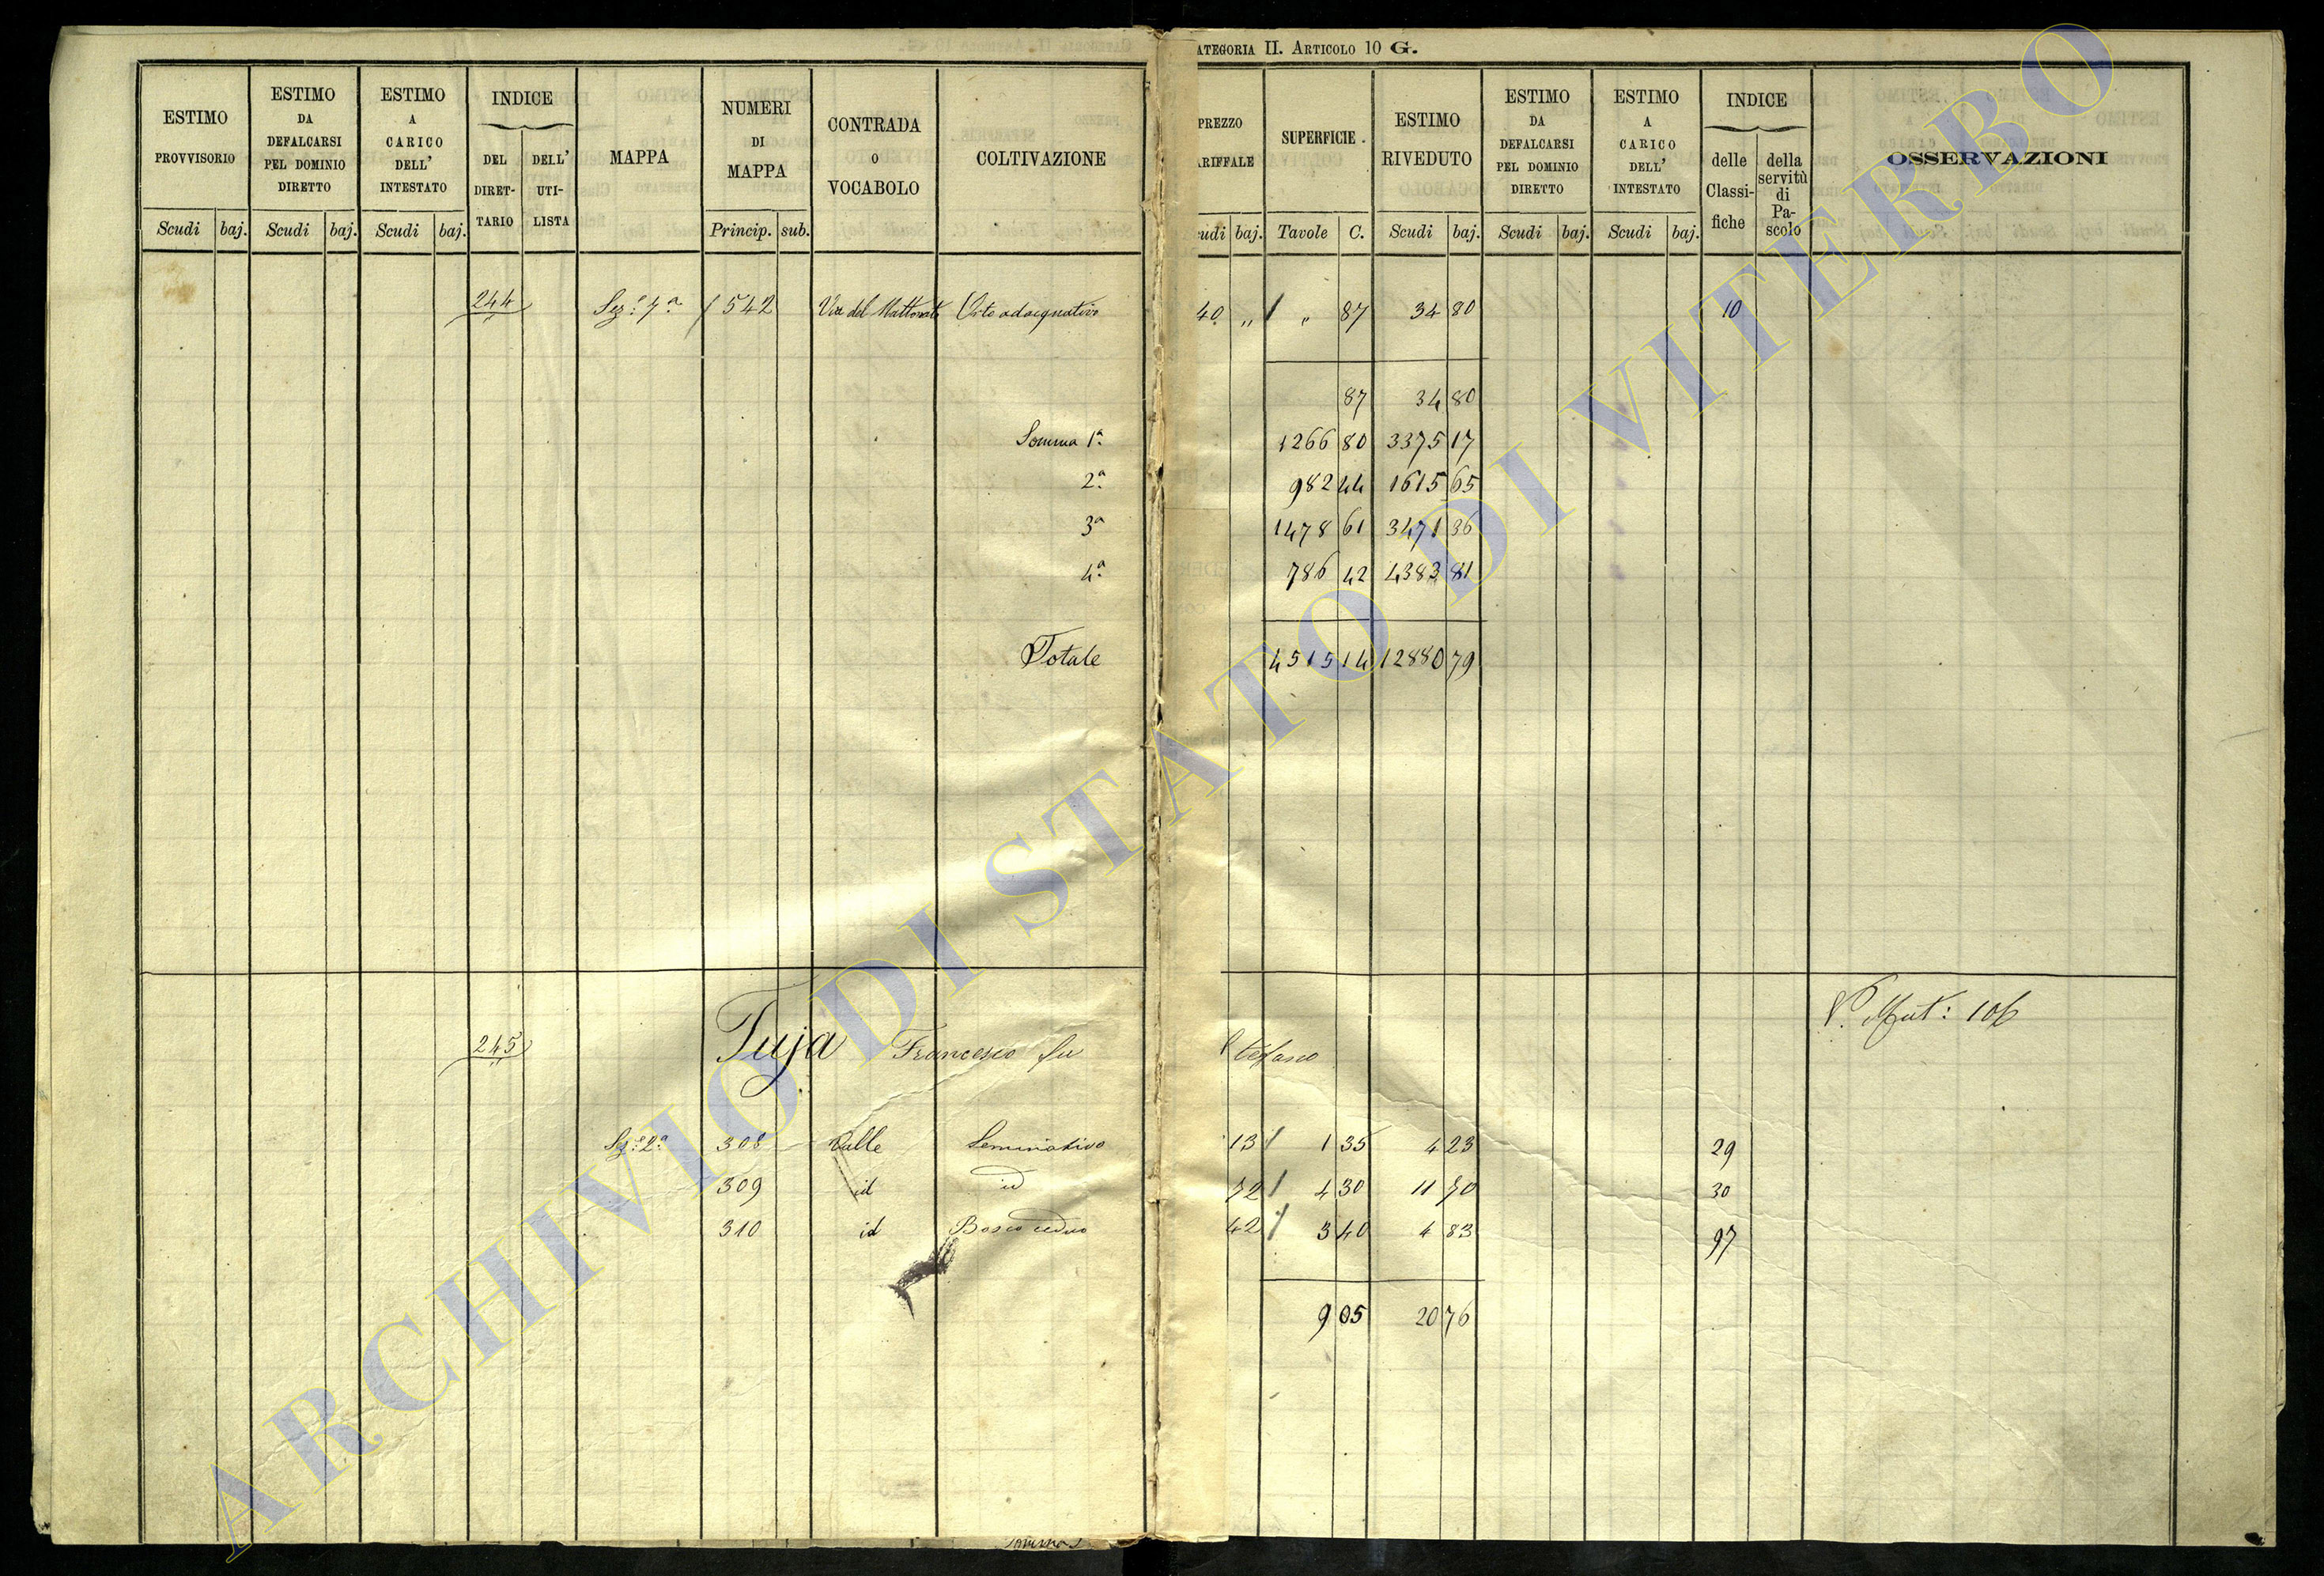 ATEGORIA II. ARTICOLO 10 G.
ESTIMO PROVVISORIO
ESTIMO DA DEFALCARSI PEL DOMINIO DIRETTO
ESTIMO A CARICO DELL' INTESTATO
INDICE
DEL DIRETTARIO
DELL' UTILISTA
MAPPA
NUMERI DI MAPPA
CONTRADA O VOCABOLO
COLTIVAZIONE
PREZZO ARIFFALE
SUPERFICIE
ESTIMO RIVEDUTO
ESTIMO DA DEFALCARSI PEL DOMINIO DIRETTO
ESTIMO A CARICO DELL' INTESTATO
INDICE
delle Classifiche
della servitù di Pascolo
OSSERVAZIONI
Scudi baj. Scudi baj. Scudi baj. Princip. sub. udi baj. Tavole C. Scudi baj. Scudi baj. Scudi baj.
244 Sez.e 7a 542 Via del Mattonato Orto adacquativo 40 " " 87 34 80 10
87 34 80
Somma 1a 1266 80 3375 17
2a 982 44 1615 65
3a 1478 61 3471 36
4a 786 42 4383 81
Totale 4515 14 12880 79
V. Mut:
245 Tuja Francesco fu Stefano
Sez.e 2a 308 Valle Seminativo 13 1 35 4 23 29
309 id id 72 4 30 11 70 30
310 id Bosco ceduo 42 3 40 4 83 97
9 05 20 76
ARCHIVIO DI STATO DI VITERBO